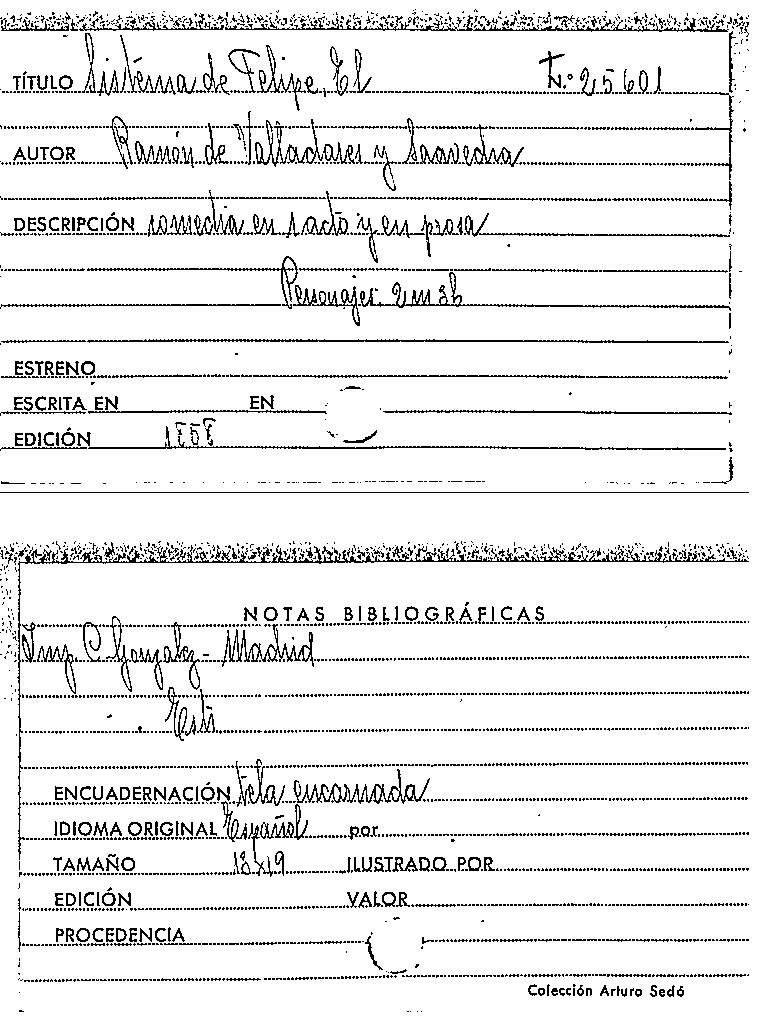 TÍTULO Sistema de Felipe, El N.º 25601
AUTOR Ramón de Valladares y Saavedra
DESCRIPCIÓN comedia en 1 acto y en prosa
Personajes. 2m 3h
ESTRENO
ESCRITA EN EN
EDICIÓN 1858
NOTAS BIBLIOGRÁFICAS
Imp. C. Gonzalez - Madrid
ENCUADERNACIÓN tela encarnada
IDIOMA ORIGINAL Español por
TAMAÑO 13x19 ILUSTRADO POR
EDICIÓN VALOR
PROCEDENCIA
Colección Arturo Sedó